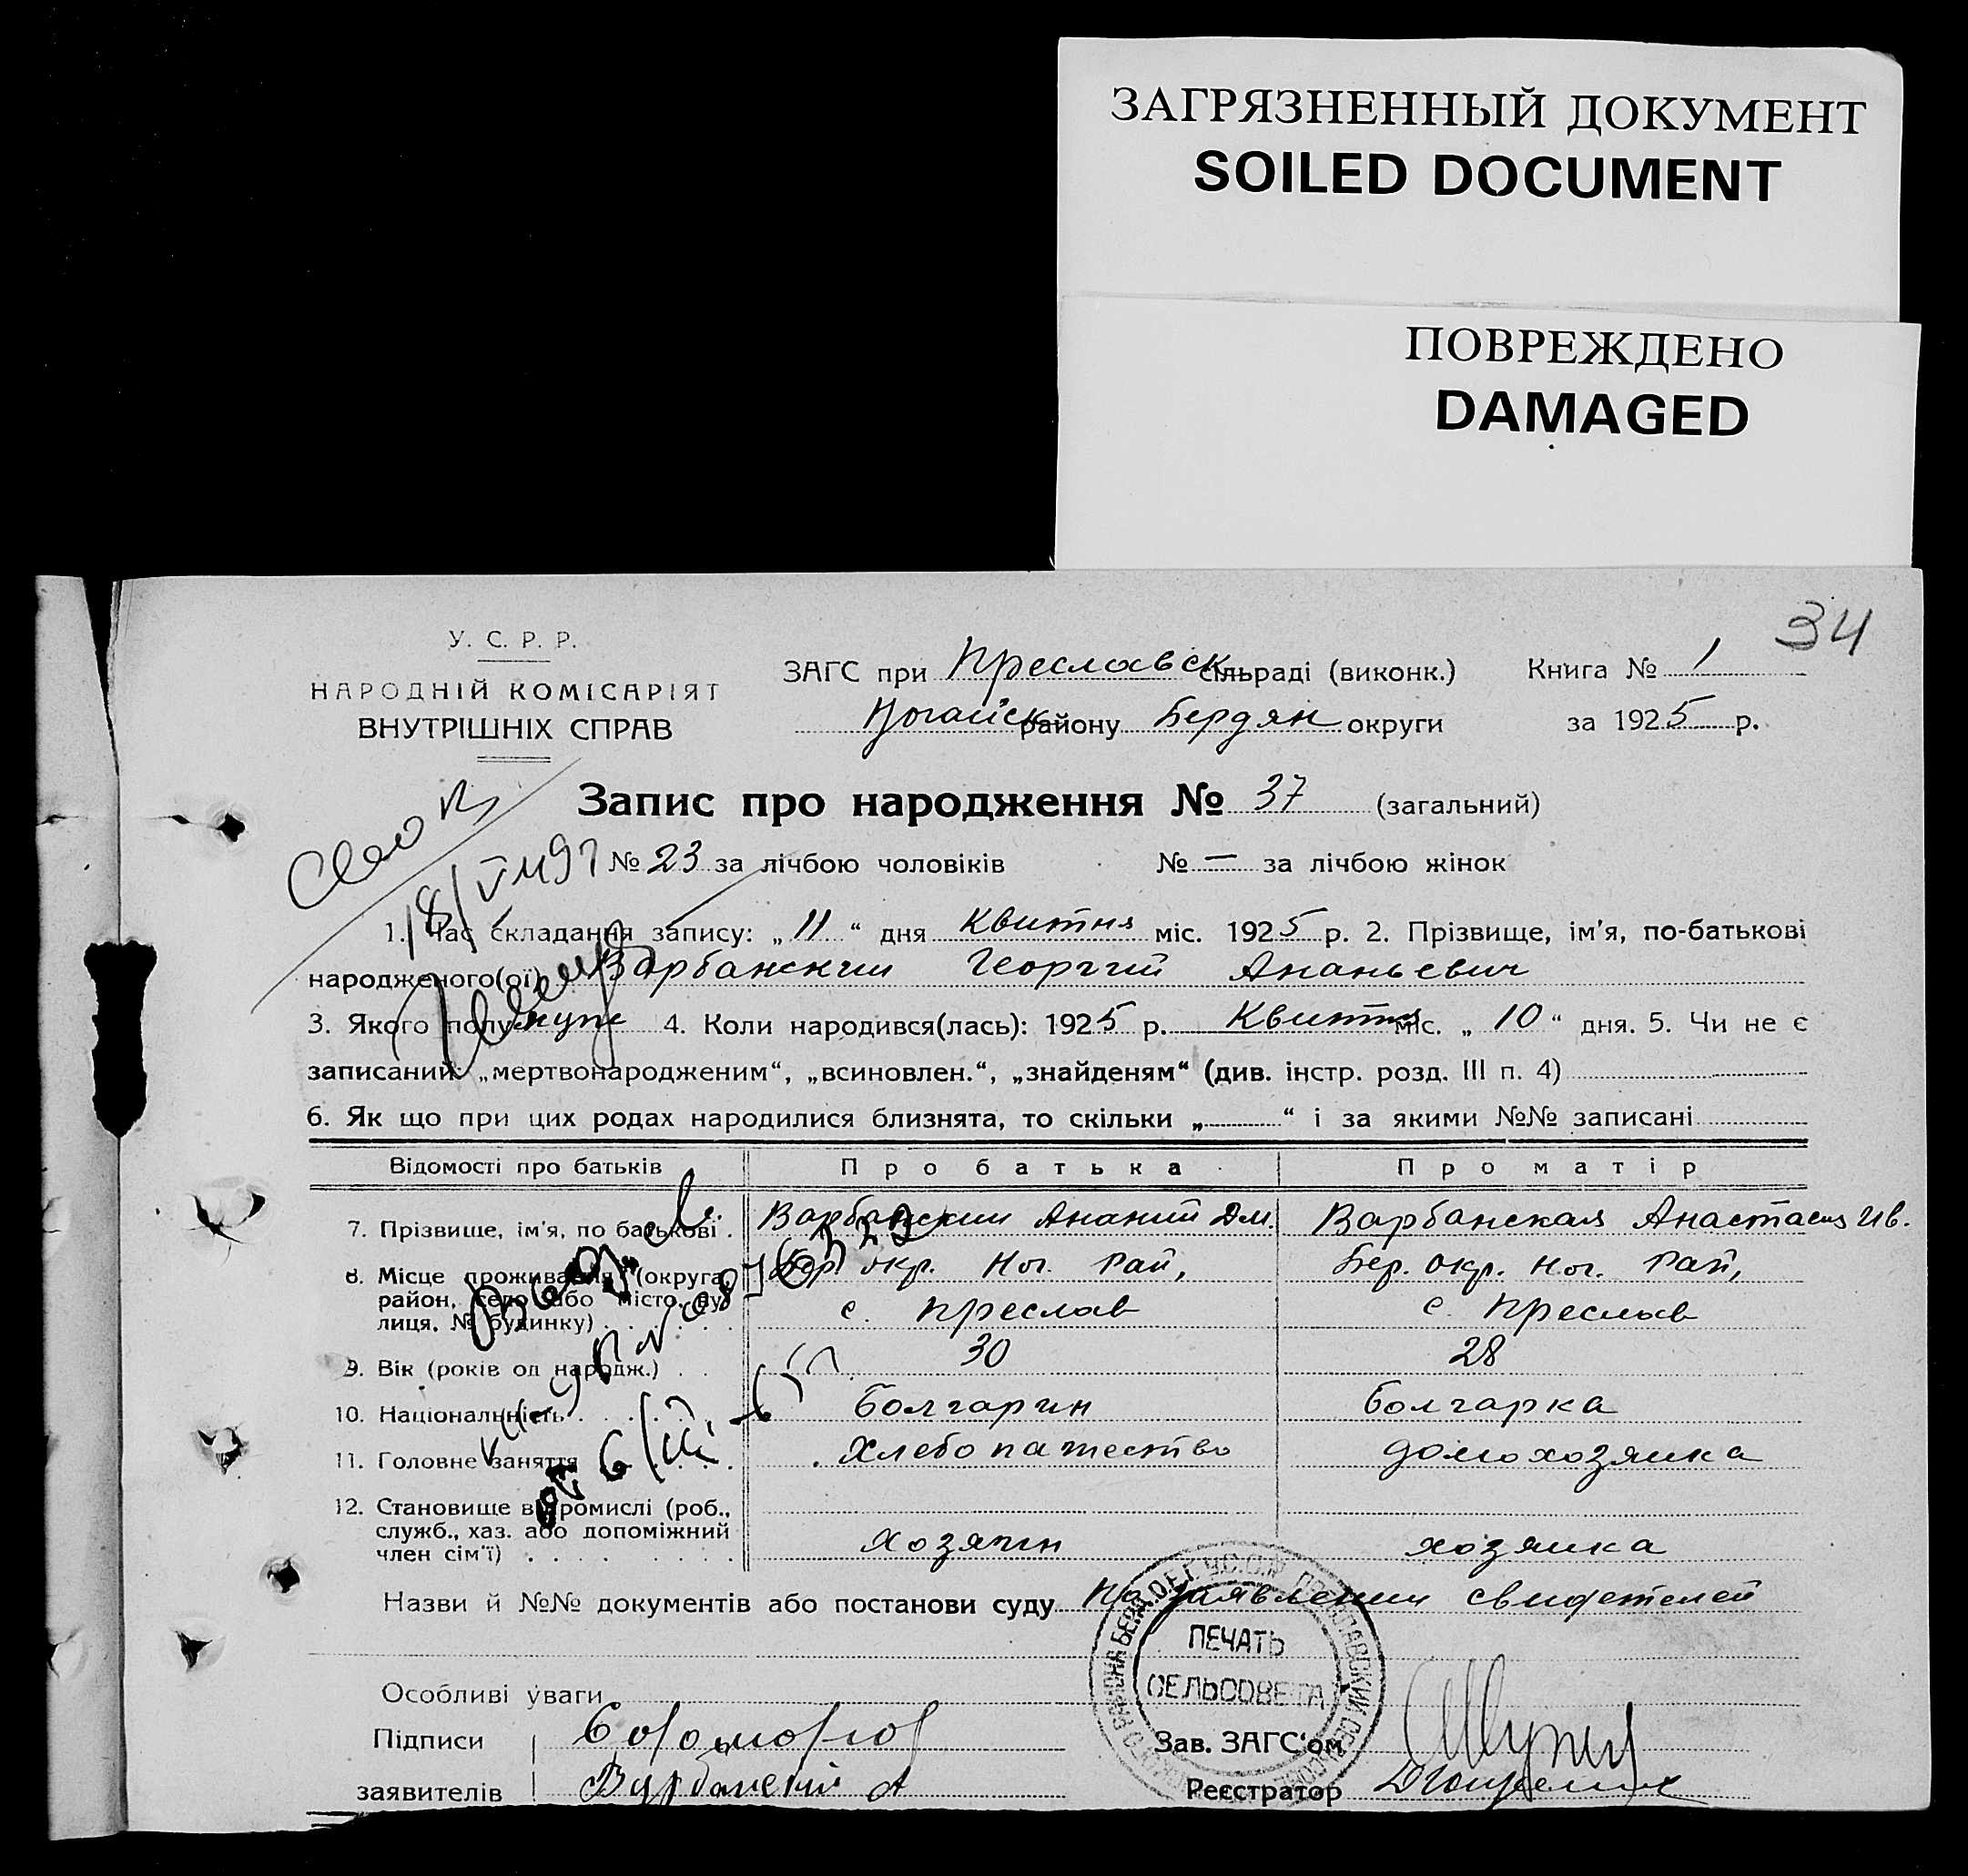 ЗАГРЯЗНЕННЫЙ ДОКУМЕНТ
SOILED DOCUMENT
ПОВРЕЖДЕНО
DAMAGED
34
У. С. Р. Р.
НАРОДНІЙ КОМІСАРІЯТ
ВНУТРІШНІХ СПРАВ
ЗАГС при Преславск сільраді (виконк.) Книга № 1
Ногайск району Бердян округи за 1925 р.
Запис про народження № 37 (загальний)
№ 23 за лічбою чоловіків № — за лічбою жінок
1. Час складання запису: „ 11 “ дня Квитня міс. 1925 р. 2. Прізвище, ім'я, по-батькові
народженого(ої) Варбанский Георгий Ананьевич
3. Якого полу муж 4. Коли народився(лась): 1925 р. Квитня міс. „ 10 “ дня. 5. Чи не є
записаний: „мертвонародженим“, „всиновлен.“, „знайденям“ (див. інстр. розд. III п. 4)
6. Як що при цих родах народилися близнята, то скільки „ “ і за якими №№ записані
Відомості про батьків Про батька Про матір
7. Прізвище, ім'я, по батькові . Варбанский Ананий Дм. Варбанская Анастасия Ив.
8. Місце проживання (округа, Бер. окр. Ног. Рай, Бер. окр. Ног. Рай,
район, село або місто, ву- с. Преслав с. Преслав
лиця, № будинку)
9. Вік (років од народж.) 30 28
10. Національність Болгарин Болгарка
11. Головне заняття Хлебопашество домохозяйка
12. Становище в промислі (роб.,
служб., хаз. або допоміжний
член сім'ї) хозяин хозяйка
Назви й №№ документів або постанови суду По заявлении свидетелей
ПЕЧАТЬ
СЕЛЬСОВЕТА
Особливі уваги
Підписи
Зав. ЗАГС'ом
заявителів Варбанский А
Реєстратор